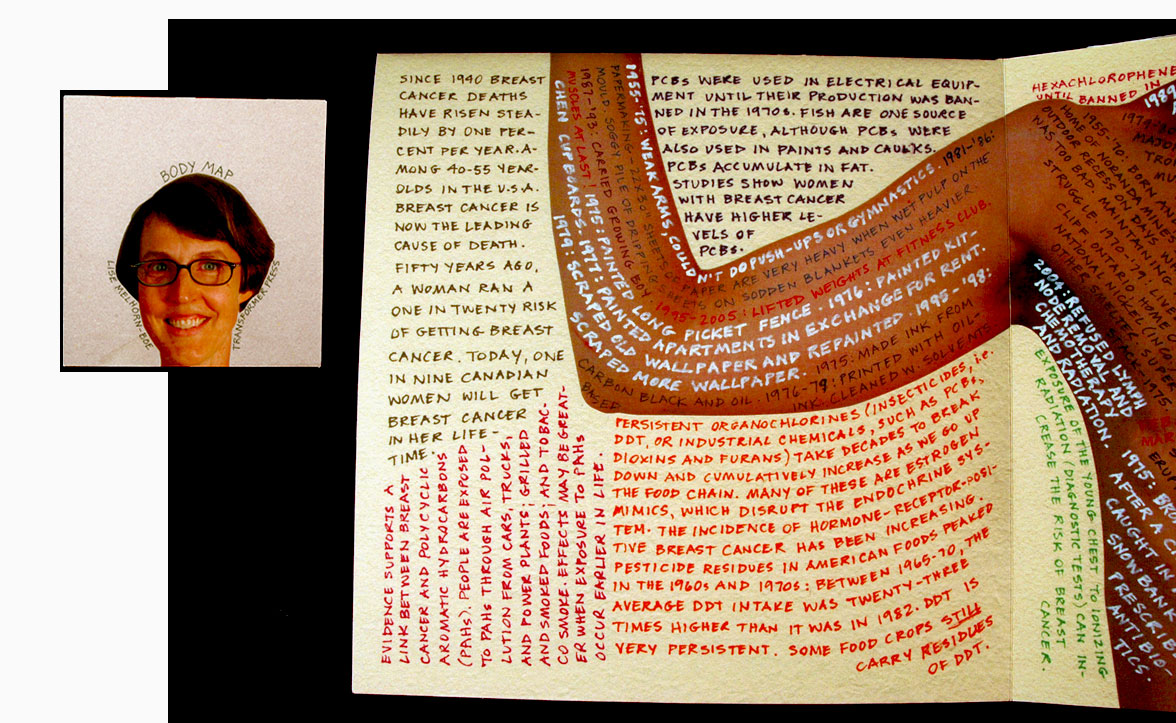 BODY MAP
LISE MELHORN-BOE
TRANSFORMER PRESS
SINCE 1940 BREAST
CANCER DEATHS
HAVE RISEN STEA-
DILY BY ONE PER-
CENT PER YEAR. A-
MONG 40-55 YEAR-
OLDS IN THE U.S.A.
BREAST CANCER IS
NOW THE LEADING
CAUSE OF DEATH.
FIFTY YEARS AGO,
A WOMAN RAN A
ONE IN TWENTY RISK
OF GETTING BREAST
CANCER. TODAY, ONE
IN NINE CANADIAN
WOMEN WILL GET
BREAST CANCER
IN HER LIFE-
TIME.
EVIDENCE SUPPORTS A
LINK BETWEEN BREAST
CANCER AND POLYCYCLIC
AROMATIC HYDROCARBONS
(PAHs). PEOPLE ARE EXPOSED
TO PAHs THROUGH AIR POL-
LUTION FROM CARS, TRUCKS,
AND POWER PLANTS; GRILLED
AND SMOKED FOODS; AND TOBAC-
CO SMOKE. EFFECTS MAY BE GREAT-
ER WHEN EXPOSURE TO PAHs
OCCUR EARLIER IN LIFE.
PCBs WERE USED IN ELECTRICAL EQUIP-
MENT UNTIL THEIR PRODUCTION WAS BAN-
NED IN THE 1970s. FISH ARE ONE SOURCE
OF EXPOSURE, ALTHOUGH PCBs WERE
ALSO USED IN PAINTS AND CAULKS.
PCBs ACCUMULATE IN FAT.
STUDIES SHOW WOMEN
WITH BREAST CANCER
HAVE HIGHER LE-
VELS OF
PCBs.
1955-'75: WEAK ARMS, COULDN'T DO PUSH-UPS OR GYMNASTICS. 1981-'86:
PAPERMAKING 22x30" SHEETS OF PAPER ARE VERY HEAVY WHEN WET PULP ON THE
MOULD; SOGGY PILE OF DRIPPING SHEETS ON SODDEN BLANKETS EVEN HEAVIER.
1987-'93: CARRIED GROWING BOY. 1995-2005: LIFTED WEIGHTS AT FITNESS CLUB.
MUSCLES AT LAST! 1975: PAINTED LONG PICKET FENCE 1976: PAINTED KIT-
CHEN CUPBOARDS. 1977: PAINTED APARTMENTS IN EXCHANGE FOR RENT.
1979: SCRAPED OLD WALLPAPER AND REPAINTED. 1995-'98:
SCRAPED MORE WALLPAPER. 1975: MADE INK FROM
CARBON BLACK AND OIL. 1976-'79: PRINTED WITH OIL-
BASED INK. CLEANED W. SOLVENTS
PERSISTENT ORGANOCHLORINES (INSECTICIDES, i.e.
DDT, OR INDUSTRIAL CHEMICALS, SUCH AS PCBs,
DIOXINS AND FURANS) TAKE DECADES TO BREAK
DOWN AND CUMULATIVELY INCREASE AS WE GO UP
THE FOOD CHAIN. MANY OF THESE ARE ESTROGEN
MIMICS, WHICH DISRUPT THE ENDOCRINE SYS-
TEM. THE INCIDENCE OF HORMONE-RECEPTOR-POSI-
TIVE BREAST CANCER HAS BEEN INCREASING.
PESTICIDE RESIDUES IN AMERICAN FOODS PEAKED
IN THE 1960s AND 1970s: BETWEEN 1965-70, THE
AVERAGE DDT INTAKE WAS TWENTY-THREE
TIMES HIGHER THAN IT WAS IN 1982. DDT IS
VERY PERSISTENT. SOME FOOD CROPS STILL
CARRY RESIDUES
OF DDT.
HEXACHLOROPHENE
UNTIL BANNED IN
1989
1955-'70: BORN
HOME OF NORANDA MINES
OUTDOOR RECESS ON DAYS
WAS TOO BAD. MAINTAINING
STRUGGLE. 1970-'79
CLIFF ON
NATIONAL NICKEL (IN
OTHER SMELTER
2004: REFUSED LYMPH
NODE REMOVAL AND
CHEMOTHERAPY
AND RADIATION. 1975:
AFTER A
CAUGHT IN
SNOWBANK
PRESCRIBED
ANTIBIO-
TICS.
EXPOSURE OF THE YOUNG CHEST TO IONIZING
RADIATION (DIAGNOSTIC TESTS) CAN IN-
CREASE THE RISK OF BREAST
CANCER.